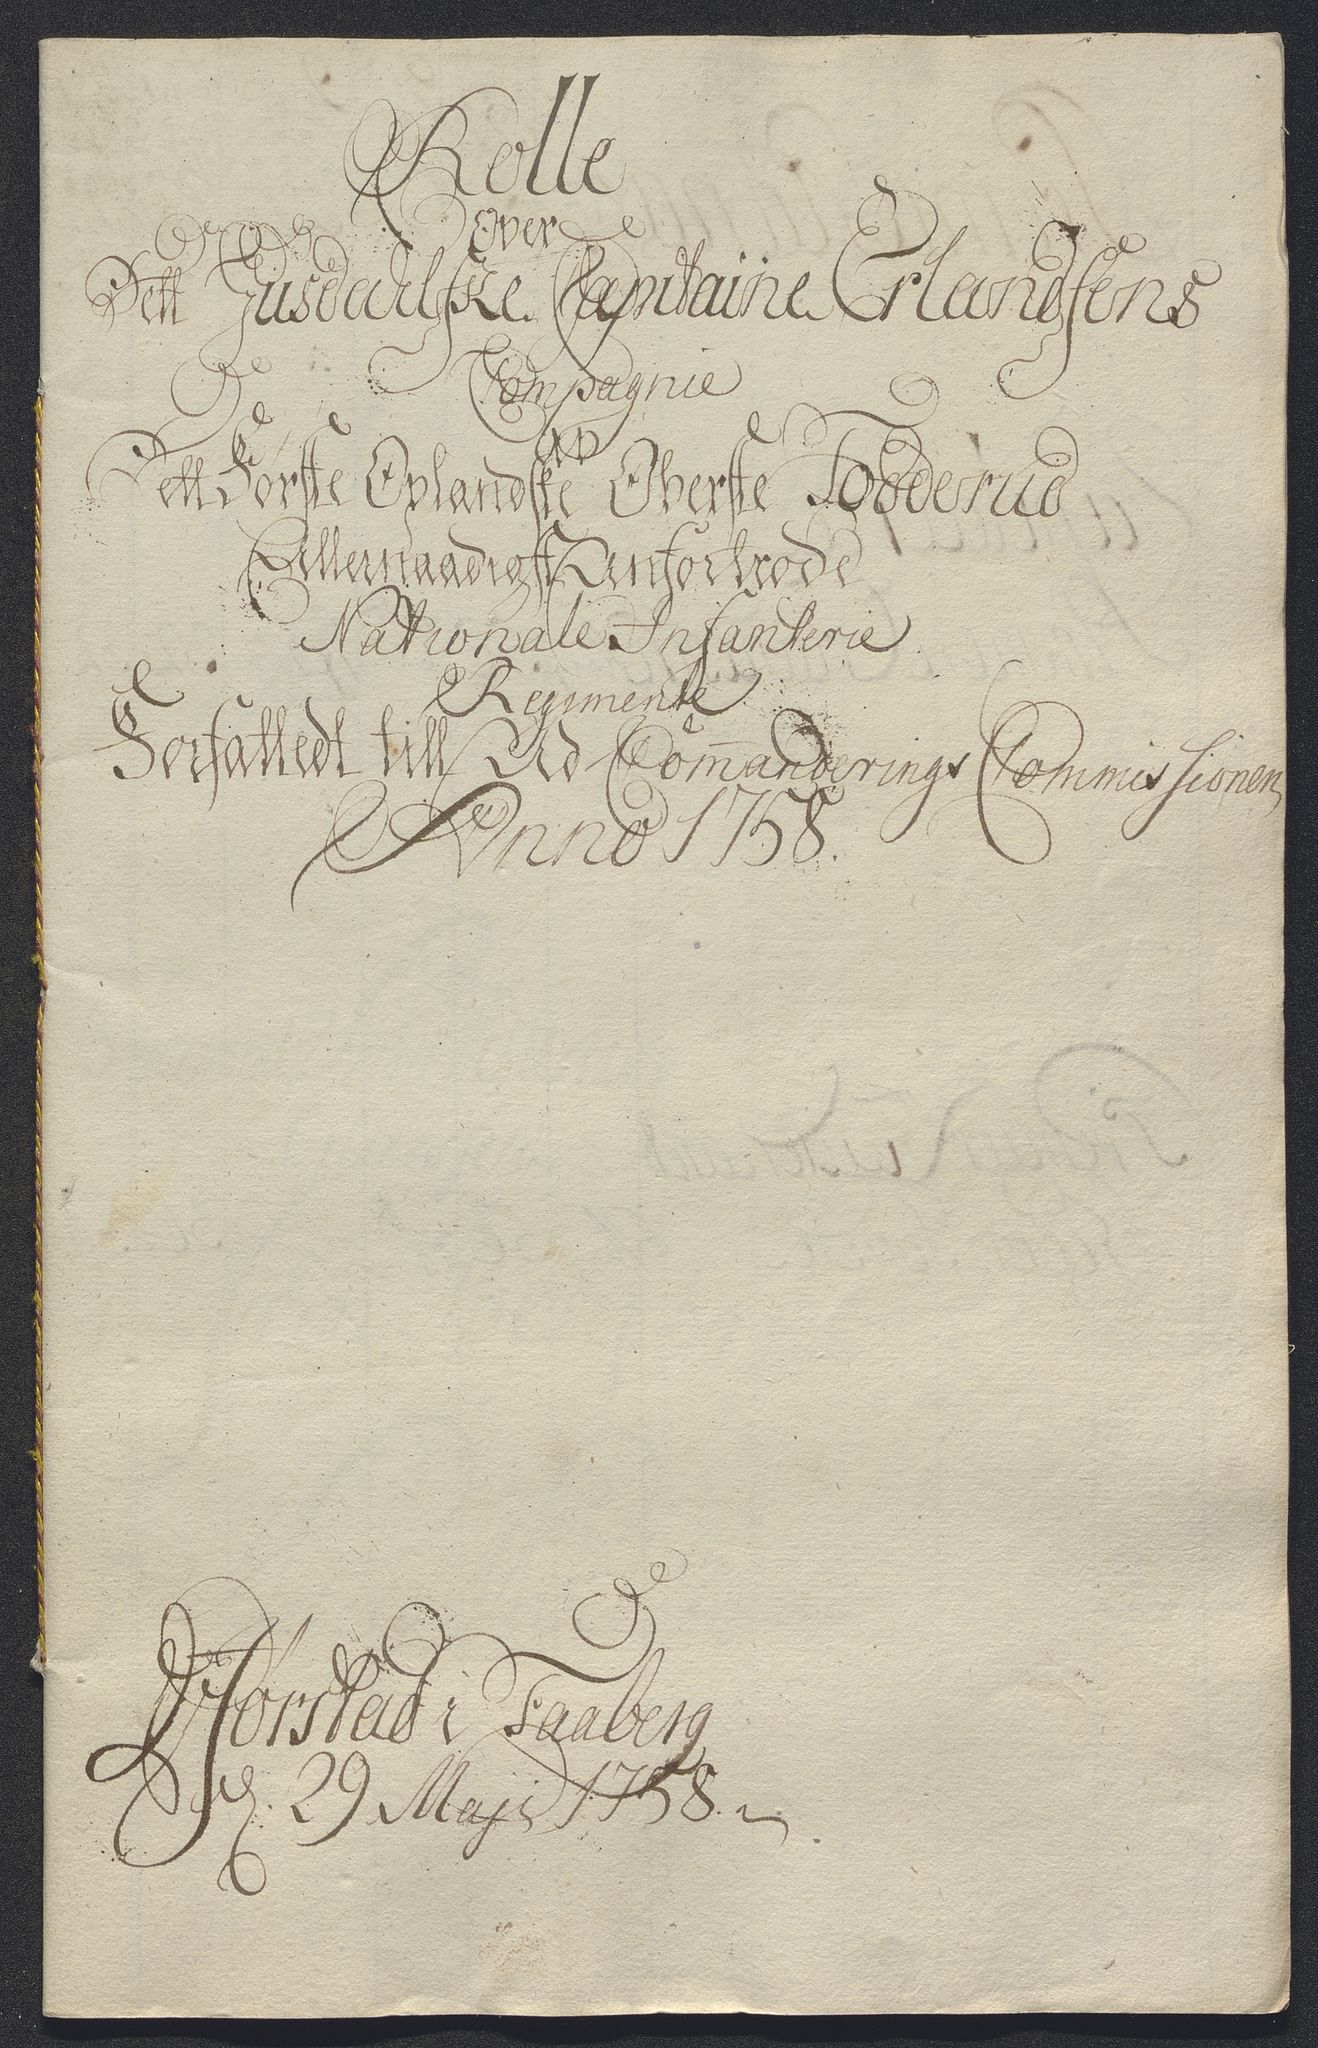 Rolle
Over
Dett Gusdahlske Capitaine Erlandsens
Compagnie
Af
Dett Første Oplandske Oberste Tøderud
Allernaadigst Anfortrode
Nationale Infanterie
Regimente
Forfattedt till Ud Com̄anderings Commissionen
Anno 1758.
Jørstad i Faaberg
d. 29 Maji 1758.